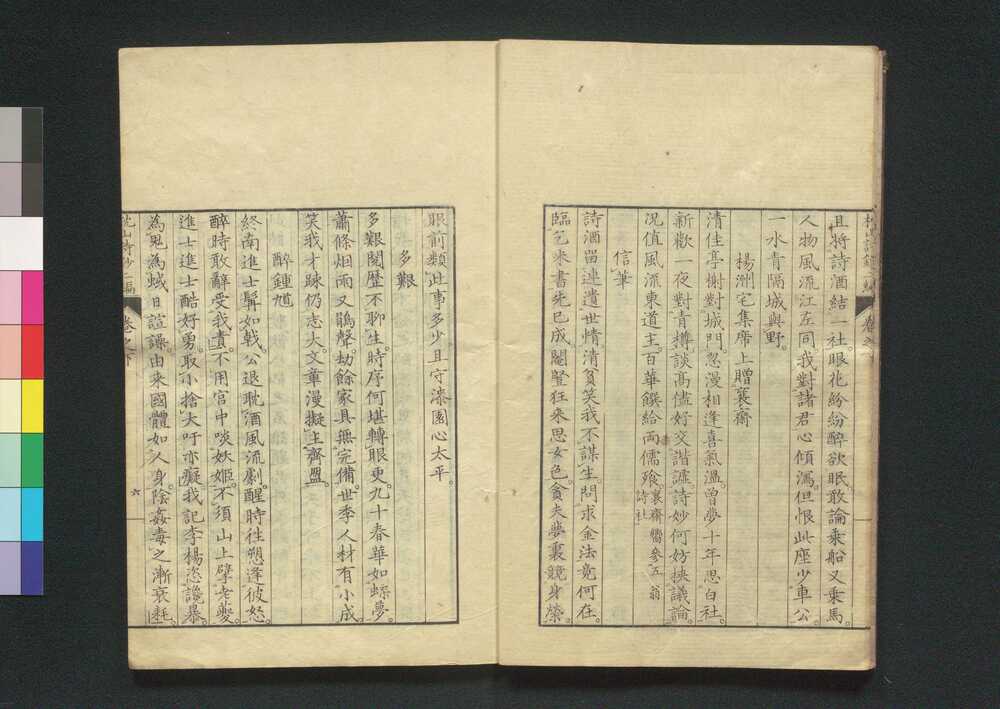 且將詩酒結一社。眼花紛紛醉欲眠敢論乘船又乘馬。
人物風流江左同我對諸君心傾瀉。但恨此座少車公。
一水青隔城與野。
楊洲宅集席上贈褧齋
清佳亭榭對城門。忽漫相逢喜氣溫。曾夢十年思白社。
新歡一夜對青樽。談高儘好交諧謔。詩妙何妨挾議論。
況值風流東道主。百華饌給兩儒飱。褧齋嚮參五翁
詩社
信筆
詩酒留連遺世情。清貧笑我不謀生。問求金法竟何在。
臨乞米書先已成。閹豎狂來思女色。貧夫夢裏競身榮。
眼前類此事多少。且守漆園心太平。
多艱
多艱閱歷不聊生。時序何堪轉眼更。九十春華如蝶夢。
蕭條烟雨又鵑聲。劫餘家具無完備。世季人材有小成。
笑我才踈仍志大。文章漫擬主齊盟。
醉鍾馗
終南進士髯如戟。公退耽酒風流劇。醒時往愬逢彼怒。
醉時敢辭受我責。不用宮中啖妖姬。不須山上擘老夔。
進士進士酷好勇。取小捨大吁亦癡。我記李楊恣讒暴。
為鬼為蜮日諠譟。由來國體如人身。陰姦毒之漸衰耗。
枕山詩鈔二編
卷之下
六